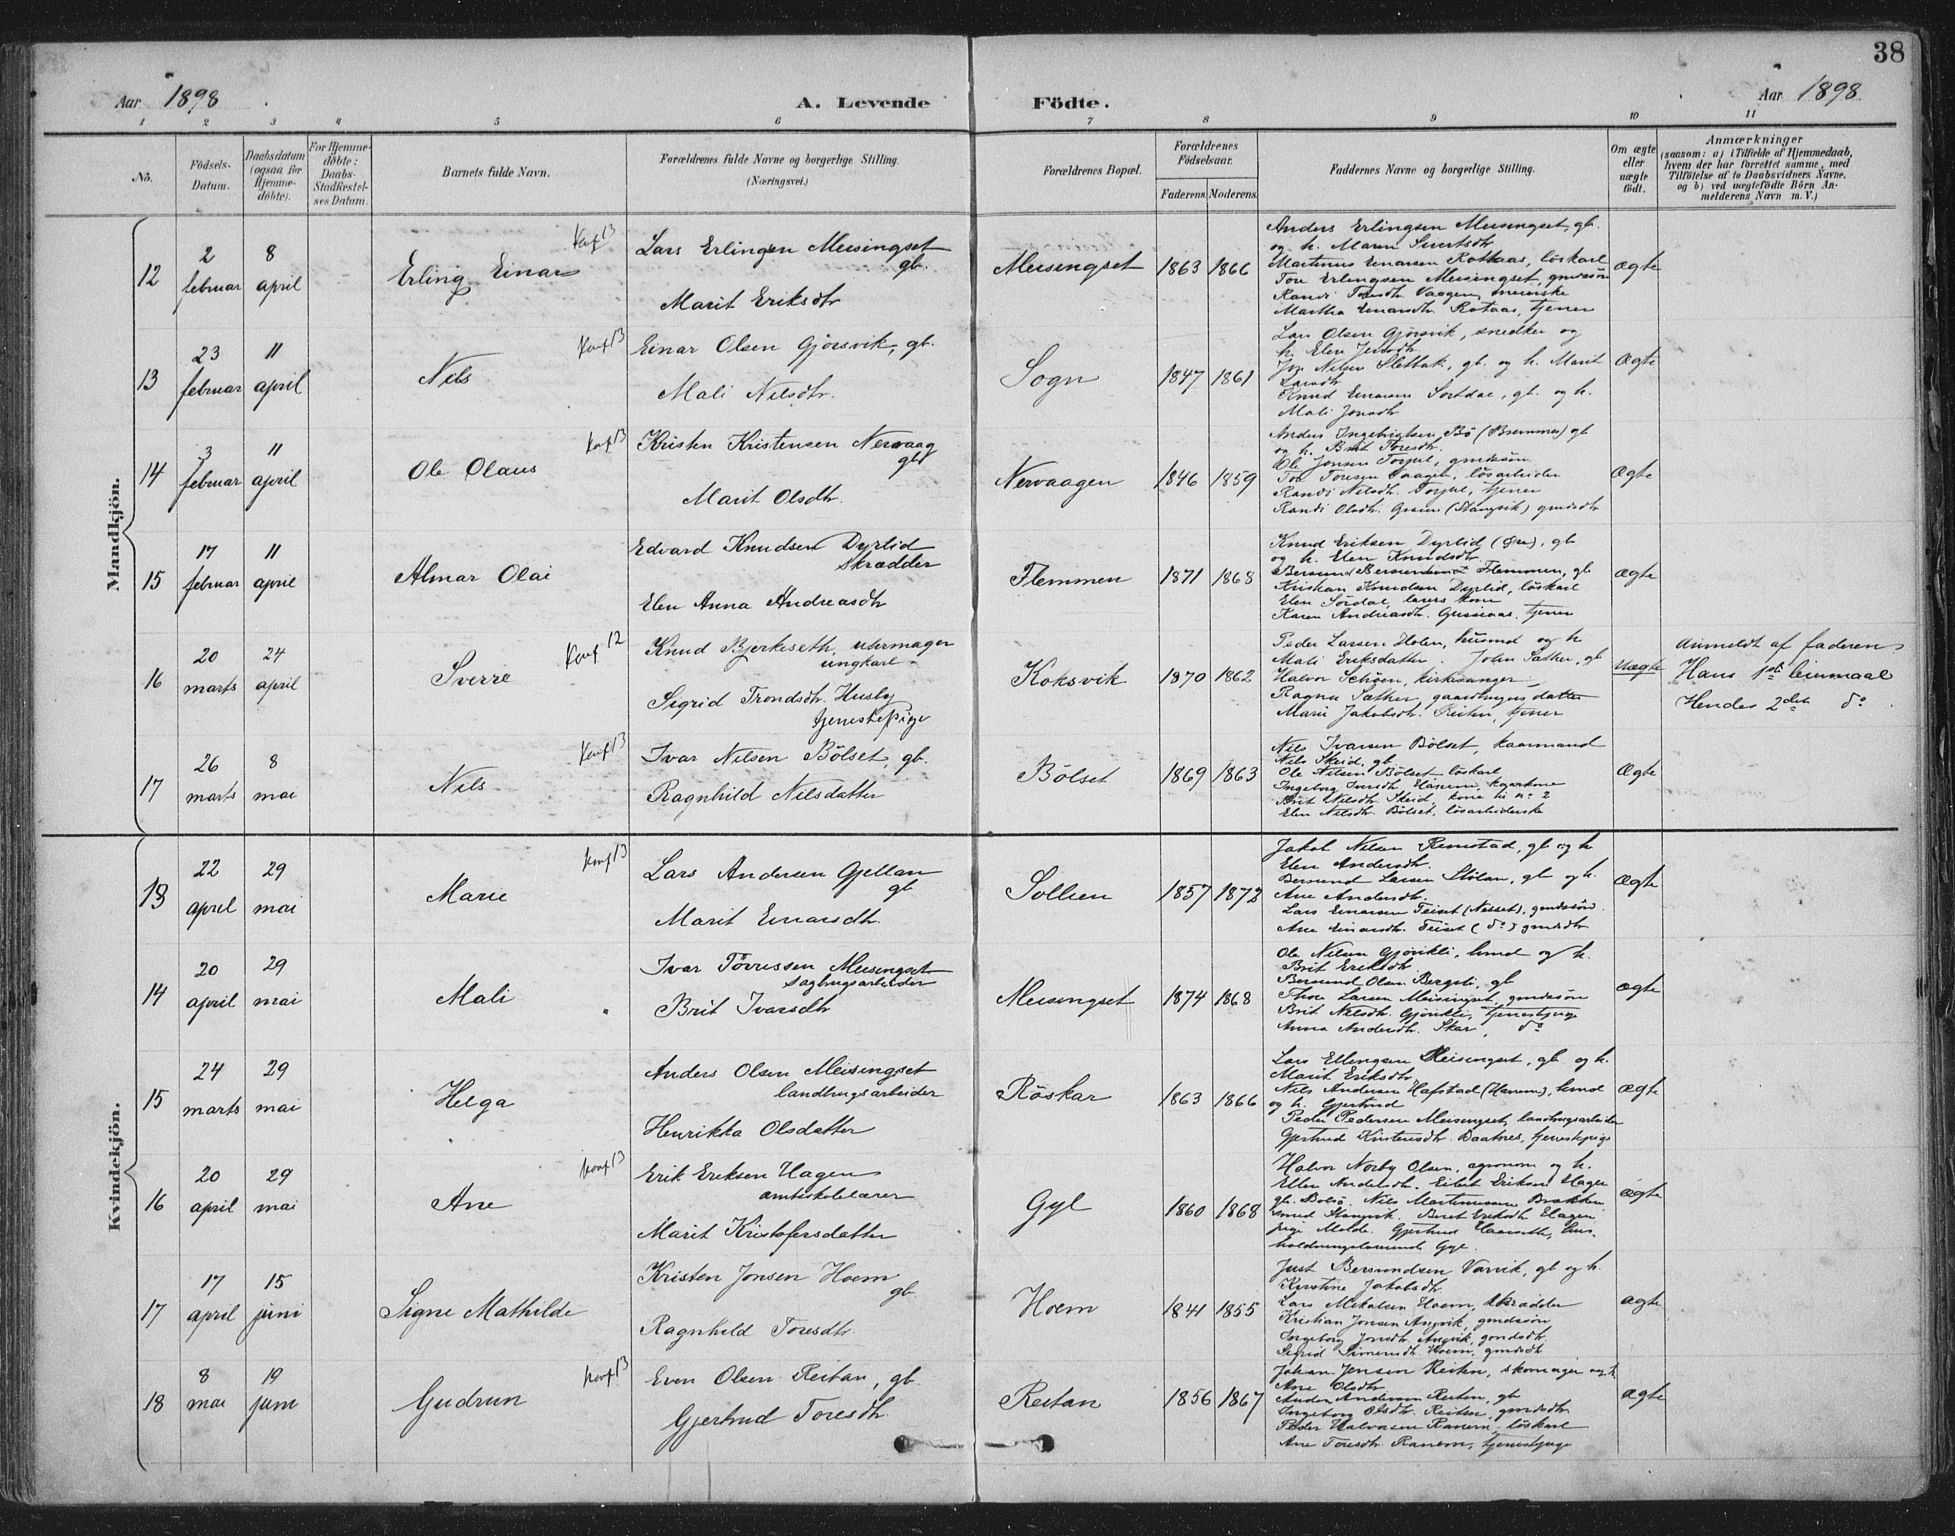 38
Aar 1898. A. Levende Födte. Aar 1898.
1 2 3 4 5 6 7 8 9 10 11
No. Födsels-Datum. Daabsdatum (ogsaa for Hjemme-döbte). For Hjemme-döbte: Daabs-Stadfæstel-ses Datum. Barnets fulde Navn. Forældrenes fulde Navne og borgerlige Stilling. (Næringsvei.) Forældrenes Bopæl. Forældrenes Födselsaar. Faderens. Moderens. Faddernes Navne og borgerlige Stilling. Om ægte eller uægte födt. Anmærkninger (saasom: a) i Tilfælde af Hjemmedaab, hvem der har forrettet samme, med Tilföielse af to Daabsvidners Navne, og b) ved uægtefödte Börn An-melderens Navn m. V.)
Mandkjön.
12 2 februar 8 april Erling Einar Konf 13
Lars Erlingsen Meisingset gb.
Marit Eriksdtr
Meisingset 1863 1866
Anders Erlingsen Meisingset, gb.
og h. Maren Sivertsdtr
Martinus Einarsen Rottaas, löskarl
Tore Erlingsen Meisingset, gmdssön
Randi Toresdtr. Vaagen,
Martha Einarsdtr. Rotaas, tjener
Ægte
13 23 februar 11 april Nils Konf 13
Einar Olsen Gjörsvik, gb.
Mali Nilsdtr.
Sogn 1847 1861
Lars Olsen Gjörsvik, snedker og
h. Elen
Nilsen Sletbak, gb. og h. Marit
Larsdtr
Knud Einarsen gb. og h.
Mali Jonsdtr
Ægte
14 3 februar 11 april Ole Olaus Konf 13
Kristen Kristensen Nervaag gb
Marit Olsdtr.
Nervaagen 1846 1859
Anders Ingebrigtsen Bö (Bremsnes) gb
og h. Brit Toresdtr.
Ole Jonsen Torjul, gmdssön
Tore Toresen Vaagen, lösarbeider
Randi Nilsdtr. Torjul, tjener
Randi Olsdtr. (Stangvik) gmdsdtr
Ægte
15 17 februar 11 april Almar Olai
Edvard Knudsen Dyrlid skrædder
Elen Anna Andreasdtr
Flemmen 1871 1868
Knud Eriksen Dyrlid (Öre), gb
og h. Elen Knudsdtr.
Bersvend Flemmen, gb
Kristian Knudsen Dyrlid, löskarl
Elen Sördal, kone
Karen Andreasdtr. tjener
Ægte
16 20 marts 24 april Sverre Konf 12
Knud Bjerkeseth, uhrmager ungkarl
Sigrid Trondsdtr. Husby tjenestepige
Koksvik 1870 1862
Peder Larsen Holen, husmd og h
Mali Eriksdatter. John Sæther, gb
Halvor Schjöen, kirkesanger
Ragna Sæther, gaardbrugers datter
Marie Jakobsdtr. Reiten, tjener
Uægte
anmeldt af faderen
Hans 1ste leiermaal
Hendes 2det do
17 26 marts 8 mai Nils Konf 13
Ivar Nilsen Bölset, gb.
Ragnhild Nilsdatter
Bölset 1869 1863
Nils Ivarsen Bölset, kaarmand
Nils Skeid, gb
Ole Nilsen Bölset, löskarl
Ingeborg Hanem,
Brit Nilsdtr. Skeid, kone til no 2
Elen Nilsdtr. Bölset, lösarbeiderske
Ægte
Kvindekjön.
13 22 april 29 mai Marie Konf 13
Lars Andersen Gjellan gb
Marit Einarsdtr.
Sollien 1857 1872
Jakob Nilsen Remstad, gb og h
Elen Andersdtr.
Bersvend Larsen Stölan, gb og h.
Ane Andersdtr.
Lars Einarsen Teiset (Nesset), gmdssön.
Ane Einarsdtr. Teiset (do) gmdsdtr
Ægte
14 20 april 29 mai Mali
Ivar Tövessen Meisingset sagbrugsarbeider
Brit Ivarsdtr
Meisingset 1874 1868
Ole Nilsen Gjövikli, husmd og h.
Brit Eriksdtr
Bersvend Olsen Bergsli, gb
Thore Larsen Meisingset, gmdssön
Brit Nilsdtr. Gjövikli, tjenestepige
Anna Andersdtr. Skar, do
Ægte
15 24 marts 29 mai Helga
Anders Olsen Meisingset landbrugsarbeider
Henrikka Olsdatter
Röskar 1863 1866
Lars Ellingsen Meisingset, gb og h.
Marit Eriksdtr
Nils Andersen Hafstad (Hanem), husmd
og h. Gjertrud
Peder Pedersen Meisingset, landbrugsarbeider
Gjertrud Kristensdtr. Baatnes, tjenestepige
Ægte
16 20 april 29 mai Ane Konf 13
Erik Eriksen Hagen amtskolelærer
Marit Kristofersdatter
Gyl 1860 1868
Halvor Norby Olsen, agronom og h.
Ellen Andersdtr. Eriksen Hagen
gb. Bolsö, Nils Martinussen Brækken
smed Stangvik. Beret Eriksdtr Hagen
pige Molde. Gjertrud
Gyl.
Ægte
17 17 april 15 juni Signe Mathilde
Kristen Jonsen Hoem gb
Ragnhild Toresdtr.
Hoem 1841 1855
Just Bersvendsen Varvik, gb og h.
Kirstine Jakobsdtr.
Lars Mikalsen Hoem, skrædder
Kristian Jonsen Angvik, gmdssön
Ingeborg Jonsdtr. Angvik, gmdsdtr.
Sigrid Simensdtr Hoem, gmdsdtr
Ægte
18 8 mai 19 juni Gudrun Konf 13
Even Olsen Reitan, gb.
Gjertrud Toresdtr
Reitan 1856 1867
Johan Jensen Reiten, skomager og h
Ane Olsdtr.
Anders Andersen Reiten, gb
Ingeborg Olsdtr. Reiten, gmdsdtr
Peder Halvorsen Ranem, löskarl
Ane Toresdtr. Ranem, tjenestepige
Ægte